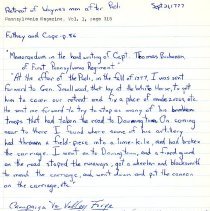 Retreat of Waynes men after the Paoli. Sept 21, 1777
Pennsylvania Magazine, Vol. 1, page 315
Futhey and Cope p. 86
"Memorandum in the handwriting of Capt. Thomas Buchanan
of First Pennsylvania Regiment.
"At the affair of the Paoli, in the fall of 1777, I was sent
forward to Gen. Smallwood, that lay at the White Horse, to get
him to cover our retreat and fix a place of rendezvous, etc.
He sent me forward to try to stop as many of his broken
troops that had taken the road to Downingtown. On coming
near to there I found where some of his artillery
had thrown a field-piece into a lime-kiln, and had broken
the carriage. I went on to Downingtown, and a fixed guard
on the road stopped the runaways, got a wheeler and blacksmith
to mend the carriage, and went down and put the cannon
on the carriage, etc."
Campaign to Valley Forge